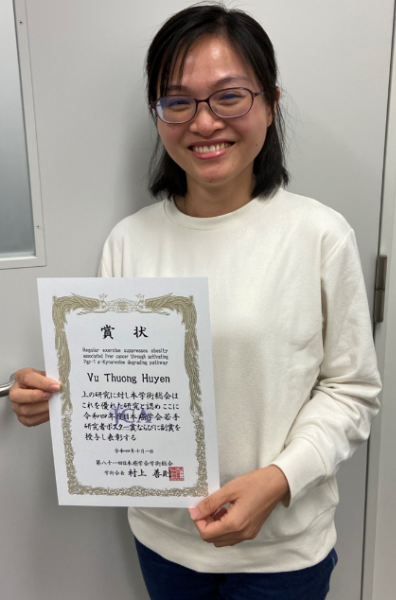 賞状
Regular exercise suppresses obesity
associated liver cancer through activating
Vu Thuong Huyen
上の研究に対し本学術総会は
これを優れた研究と認めここに
令和四年度日本癌学会若手
研究者ポスター賞ならびに副賞を
授与し表彰する
令和四年十月一日
第八十一回日本癌学会学術総会
学術会長 村上 善則